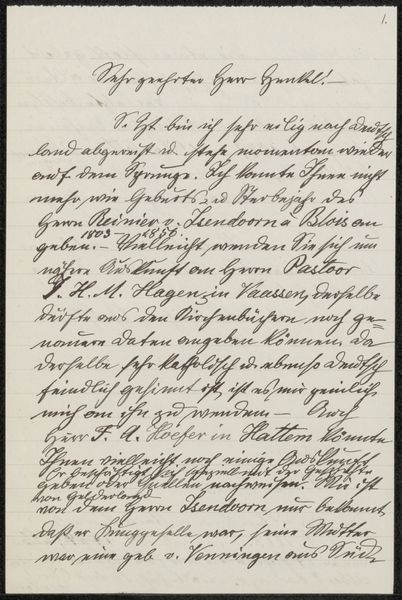 1.
Sehr geehrter Herr Henkel! —
S. Zt bin ich sehr eilig nach Deutsch
land abgereist u. stehe momentan wieder
auf dem Sprunge. Ich konnte Ihnen nicht
mehr, wie Geburts- und Sterbejahr des
Herrn Reinier v. Isendoorn à Blois an
1803 – 1856
geben. — Vielleicht wenden Sie sich um
nähere Auskunft an Herrn Pastoor
J. H. M. Hagen in Vaassen, derselbe
dürfte aus den Kirchenbüchern noch ge=
nauere Daten angeben können, da
derselbe sehr katholisch u. ebenso deutsch
feindlich gesinnt ist, ist es mir peinlich
mich an ihn zu wenden. — Auch
Herr F. A. Hoefer in Hattem könnte
Ihnen vielleicht noch einige Auskünfte
Er beschäftigt sich speziell mit der Geschichte
geben oder Quellen nachweisen. Mir ist
von Gelderland
von dem Herrn Isendoorn nur bekannt
daß er Junggeselle war, seine Mutter
war eine geb v. Venningen aus Süd=